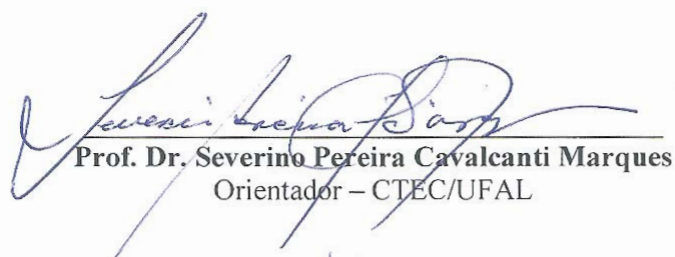 Prof. Dr. Severino Pereira Cavalcanti Marques
Orientador – CTEC/UFAL